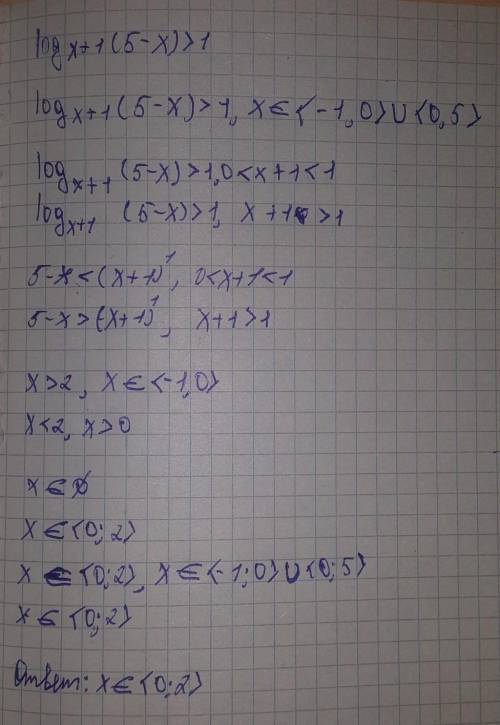 log x+1 (5-x)>1
log x+1 (5-x)>1, x∈⟨-1,0⟩∪⟨0,5⟩
log x+1 (5-x)>1, 0<x+1<1
log x+1 (5-x)>1, x+1>1
5-x<(x+1)¹, 0<x+1<1
5-x>(x+1)¹, x+1>1
x>2, x∈⟨-1,0⟩
x<2, x>0
x∈∅
x∈⟨0;2⟩
x∈⟨0;2⟩, x∈⟨-1;0⟩∪⟨0;5⟩
x∈⟨0;2⟩
Ответ: x∈⟨0;2⟩